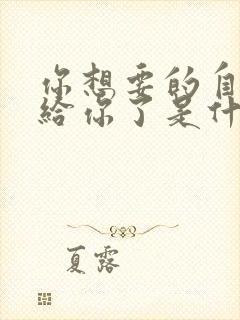 你想要的自
给你了是什
夏露